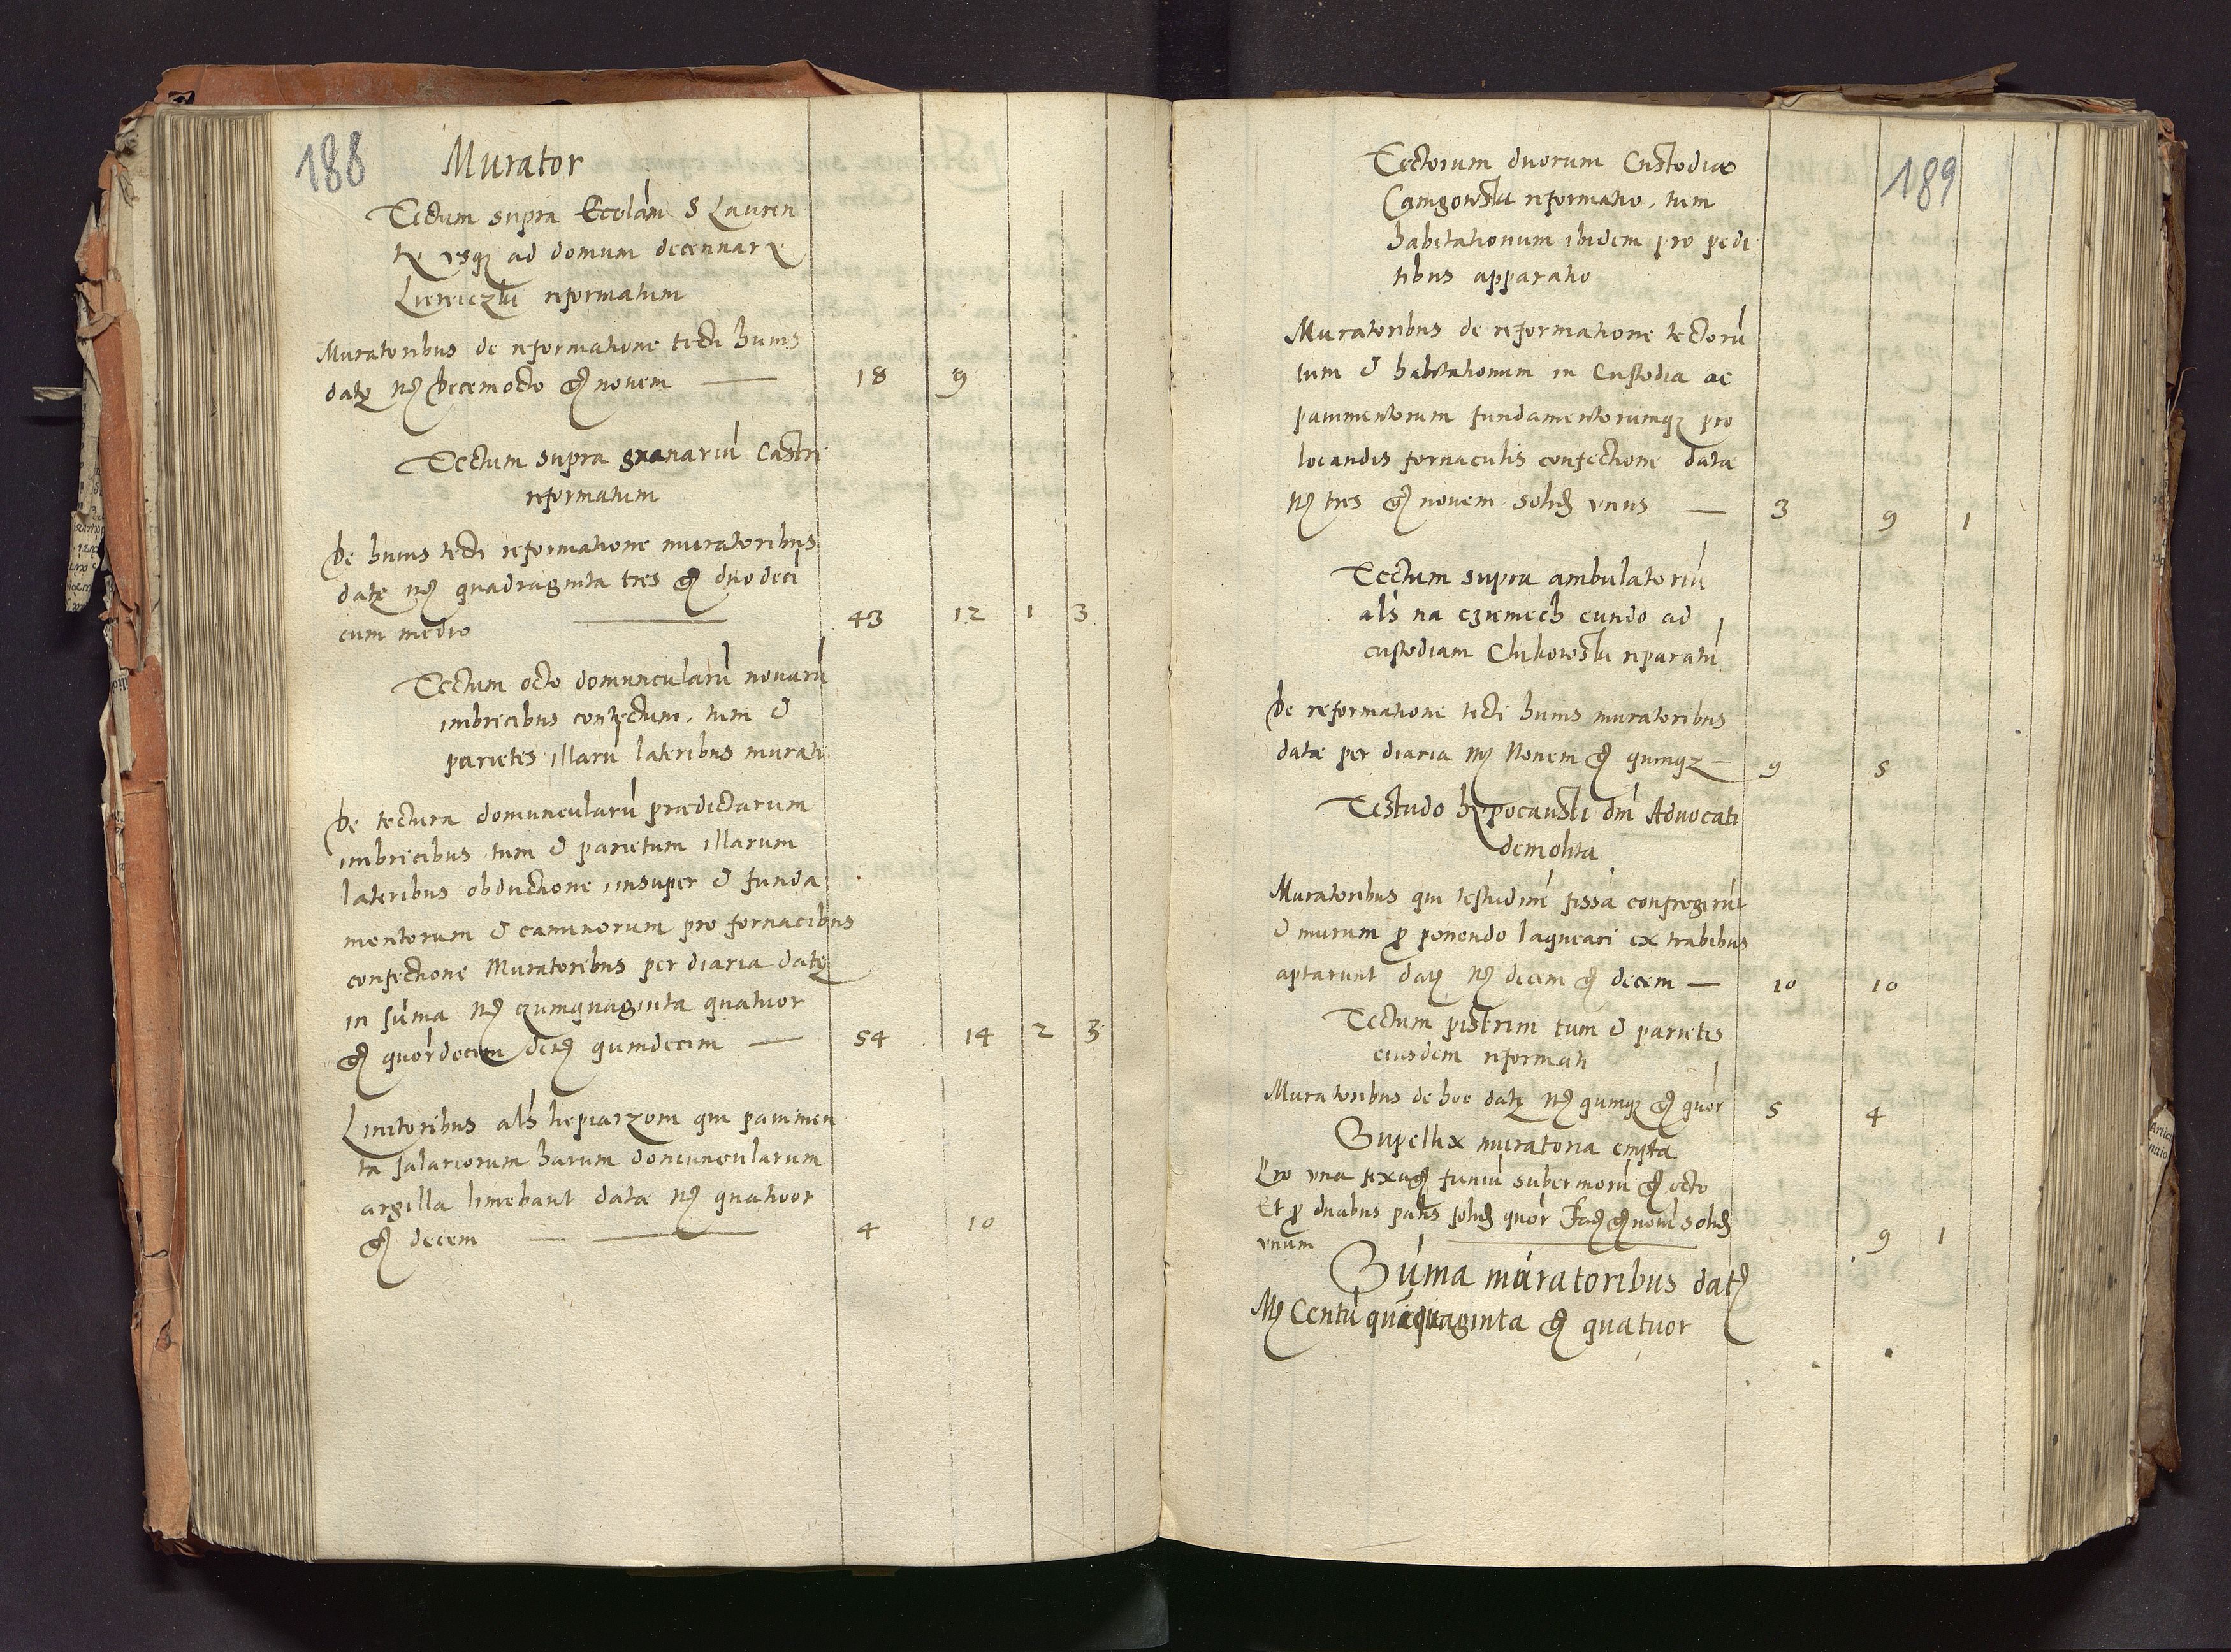 188
Murator
Tectum supra Ecclām S Lauren
tÿ vsq3 ad domum decennarÿ
reformatum
Muratoribus de reformatione tecti huius
datę mȝ decemocto gȝ novem — 18 9
Tectum supra granariū Castri
reformatum
De huius tecti reformatione muratoribus
datę mȝ quadraginta tres gȝ duodeci
cum medio — 43 12 1 3
Tectum octo domuncularū novarū
imbricibus contectum, tum &
parietes illarū lateribus murati
De tectura domuncularū prædictarum
imbricibus tum & parietum illarum
lateribus obductione insuper & funda
mentorum & caminorum pro fornacibus
confectione Muratoribus per diaria datę
in sūma mȝ qumquaginta quatuor
gȝ quōrdecem deñ qumdecim — 54 14 2 3
Linitoribus alś lepiarzom qui pavimen
ta salariorum harum domuncularum
argilla linebant data mȝ quatuor
gȝ decem — 4 10
189
Tectorum duorum Custodiæ
reformatio, tum
habitationum ibidem pro pedi
tibus apparatio
Muratoribus de reformatione tectorū
tum & habitationum in Custodia ac
pavimentorum fundamentorumq3 pro
locandis fornaculis confectione data
mȝ tres gȝ novem solid vnus — 3 9 1
Tectum supra ambulatoriū
alś na czremech eundo ad
custodiam reparatū
De reformatione tecti huius muratoribus
data per diaria mȝ Novem gȝ qumq3 — 9 5
Testudo hypocausti dñi Advocati
demolita
Muratoribus qui testudinē fissā confregerūt
& murum ꝓ ponendo laqueari ex trabibus
aptarunt datȝ mȝ decem gȝ decem — 10 10
Tectum pistrini tum & parietes
eiusdem reformati
Muratoribus de hoc datę mȝ qumq3 gȝ quōr 5 4
Supellex muratoria empta
Pro vna sexagȝ funiū gȝ octo
Et ꝓ duabus palis solid quōr Facȝ gȝ novē solid
vnum — 9 1
Sūma muratoribus datȝ
Mȝ Centū quīquaginta gȝ quatuor